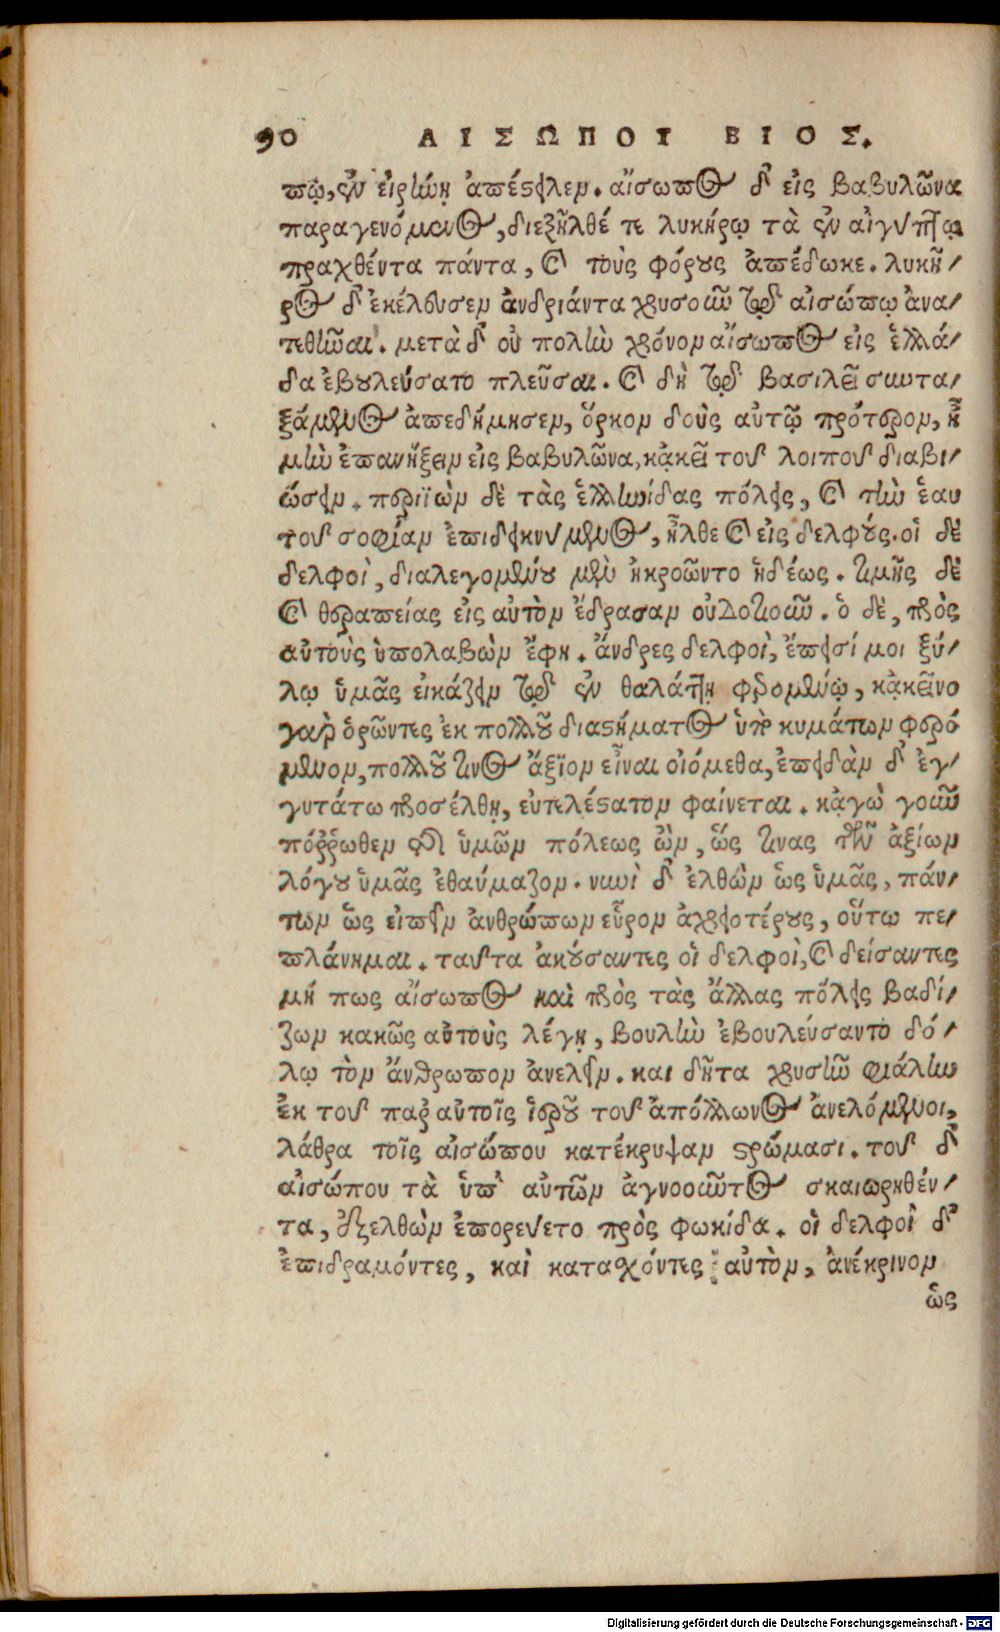 90 ΑΙΣΩΠΟΥ ΒΙΟΣ.
πῳ, ἐν εἰρήνῃ ἀπέστειλεν. αἴσωπος δ' εἰς βαβυλῶνα
παραγενόμενος, διεξῆλθέ τε λυκήρῳ τὰ ἐν αἰγύπτῳ
πραχθέντα πάντα, καὶ τοὺς φόρους ἀπέδωκε. λυκῆ-
ρος δ' ἐκέλευσεν ἀνδριάντα χρυσοῦν τῷ αἰσώπῳ ἀνα-
τεθῆναι. μετὰ δ' οὐ πολὺν χρόνον αἴσωπος εἰς ἑλλά-
δα ἐβουλεύσατο πλεῦσαι. καὶ δὴ τῷ βασιλεῖ συντα-
ξάμενος ἀπεδήμησεν, ὅρκον δοὺς αὐτῷ πρότερον, ἦ
μὴν ἐπανήξειν εἰς βαβυλῶνα, κἀκεῖ τοῦ λοιποῦ διαβι-
ώσειν. περιϊὼν δὲ τὰς ἑλληνίδας πόλεις, καὶ τὴν ἑαυ
τοῦ σοφίαν ἐπιδεικνύμενος, ἦλθε καὶ εἰς δελφούς. οἱ δὲ
δελφοὶ, διαλεγομένου μὲν ἠκροῶντο ἡδέως. τιμῆς δὲ
καὶ θεραπείας εἰς αὐτὸν ἔδρασαν οὐδοτιοῦν. ὁ δὲ, πρὸς
αὐτοὺς ὑπολαβὼν ἔφη. ἄνδρες δελφοὶ, ἔπεισί μοι ξύ-
λῳ ὑμᾶς εἰκάζειν τῷ ἐν θαλάττῃ φερομένῳ, κἀκεῖνο
γὰρ ὁρῶντες ἐκ πολλοῦ διαστήματος ὑπὸ κυμάτων φερό
μενον, πολλοῦ τινος ἄξιον εἶναι οἰόμεθα, ἐπειδὰν δ' ἐγ-
γυτάτω προσέλθῃ, εὐτελέστατον φαίνεται. κἀγὼ γοῦν
πόῤῥωθεν τῆς ὑμῶν πόλεως ὢν, ὥς τινας τῶν ἀξίων
λόγου ὑμᾶς ἐθαύμαζον. νυνὶ δ' ἐλθὼν ὡς ὑμᾶς, πάν-
των ὡς εἰπεῖν ἀνθρώπων εὗρον ἀχρειοτέρους, οὕτω πε-
πλάνημαι. ταῦτα ἀκούσαντες οἱ δελφοὶ, καὶ δείσαντες
μή πως αἴσωπος καὶ πρὸς τὰς ἄλλας πόλεις βαδί-
ζων κακῶς αὐτοὺς λέγῃ, βουλὴν ἐβουλεύσαντο δό-
λῳ τὸν ἄνθρωπον ἀνελεῖν. και δῆτα χρυσῆν φιάλην
ἐκ τοῦ παρ' αὐτοῖς ἱεροῦ τοῦ ἀπόλλωνος ἀνελόμενοι,
λάθρα τοῖς αἰσώπου κατέκρυψαν στρώμασι. τοῦ δ'
αἰσώπου τὰ ὑπ' αὐτῶν ἀγνοοῦντος σκαιωρηθέν-
τα, ἐξελθὼν ἐπορεύετο πρὸς φωκίδα. οἱ δελφοὶ δ'
ἐπιδραμόντες, καὶ κατασχόντες αὐτὸν, ἀνέκρινον
ὡς
Digitalisierung gefördert durch die Deutsche Forschungsgemeinschaft - DFG